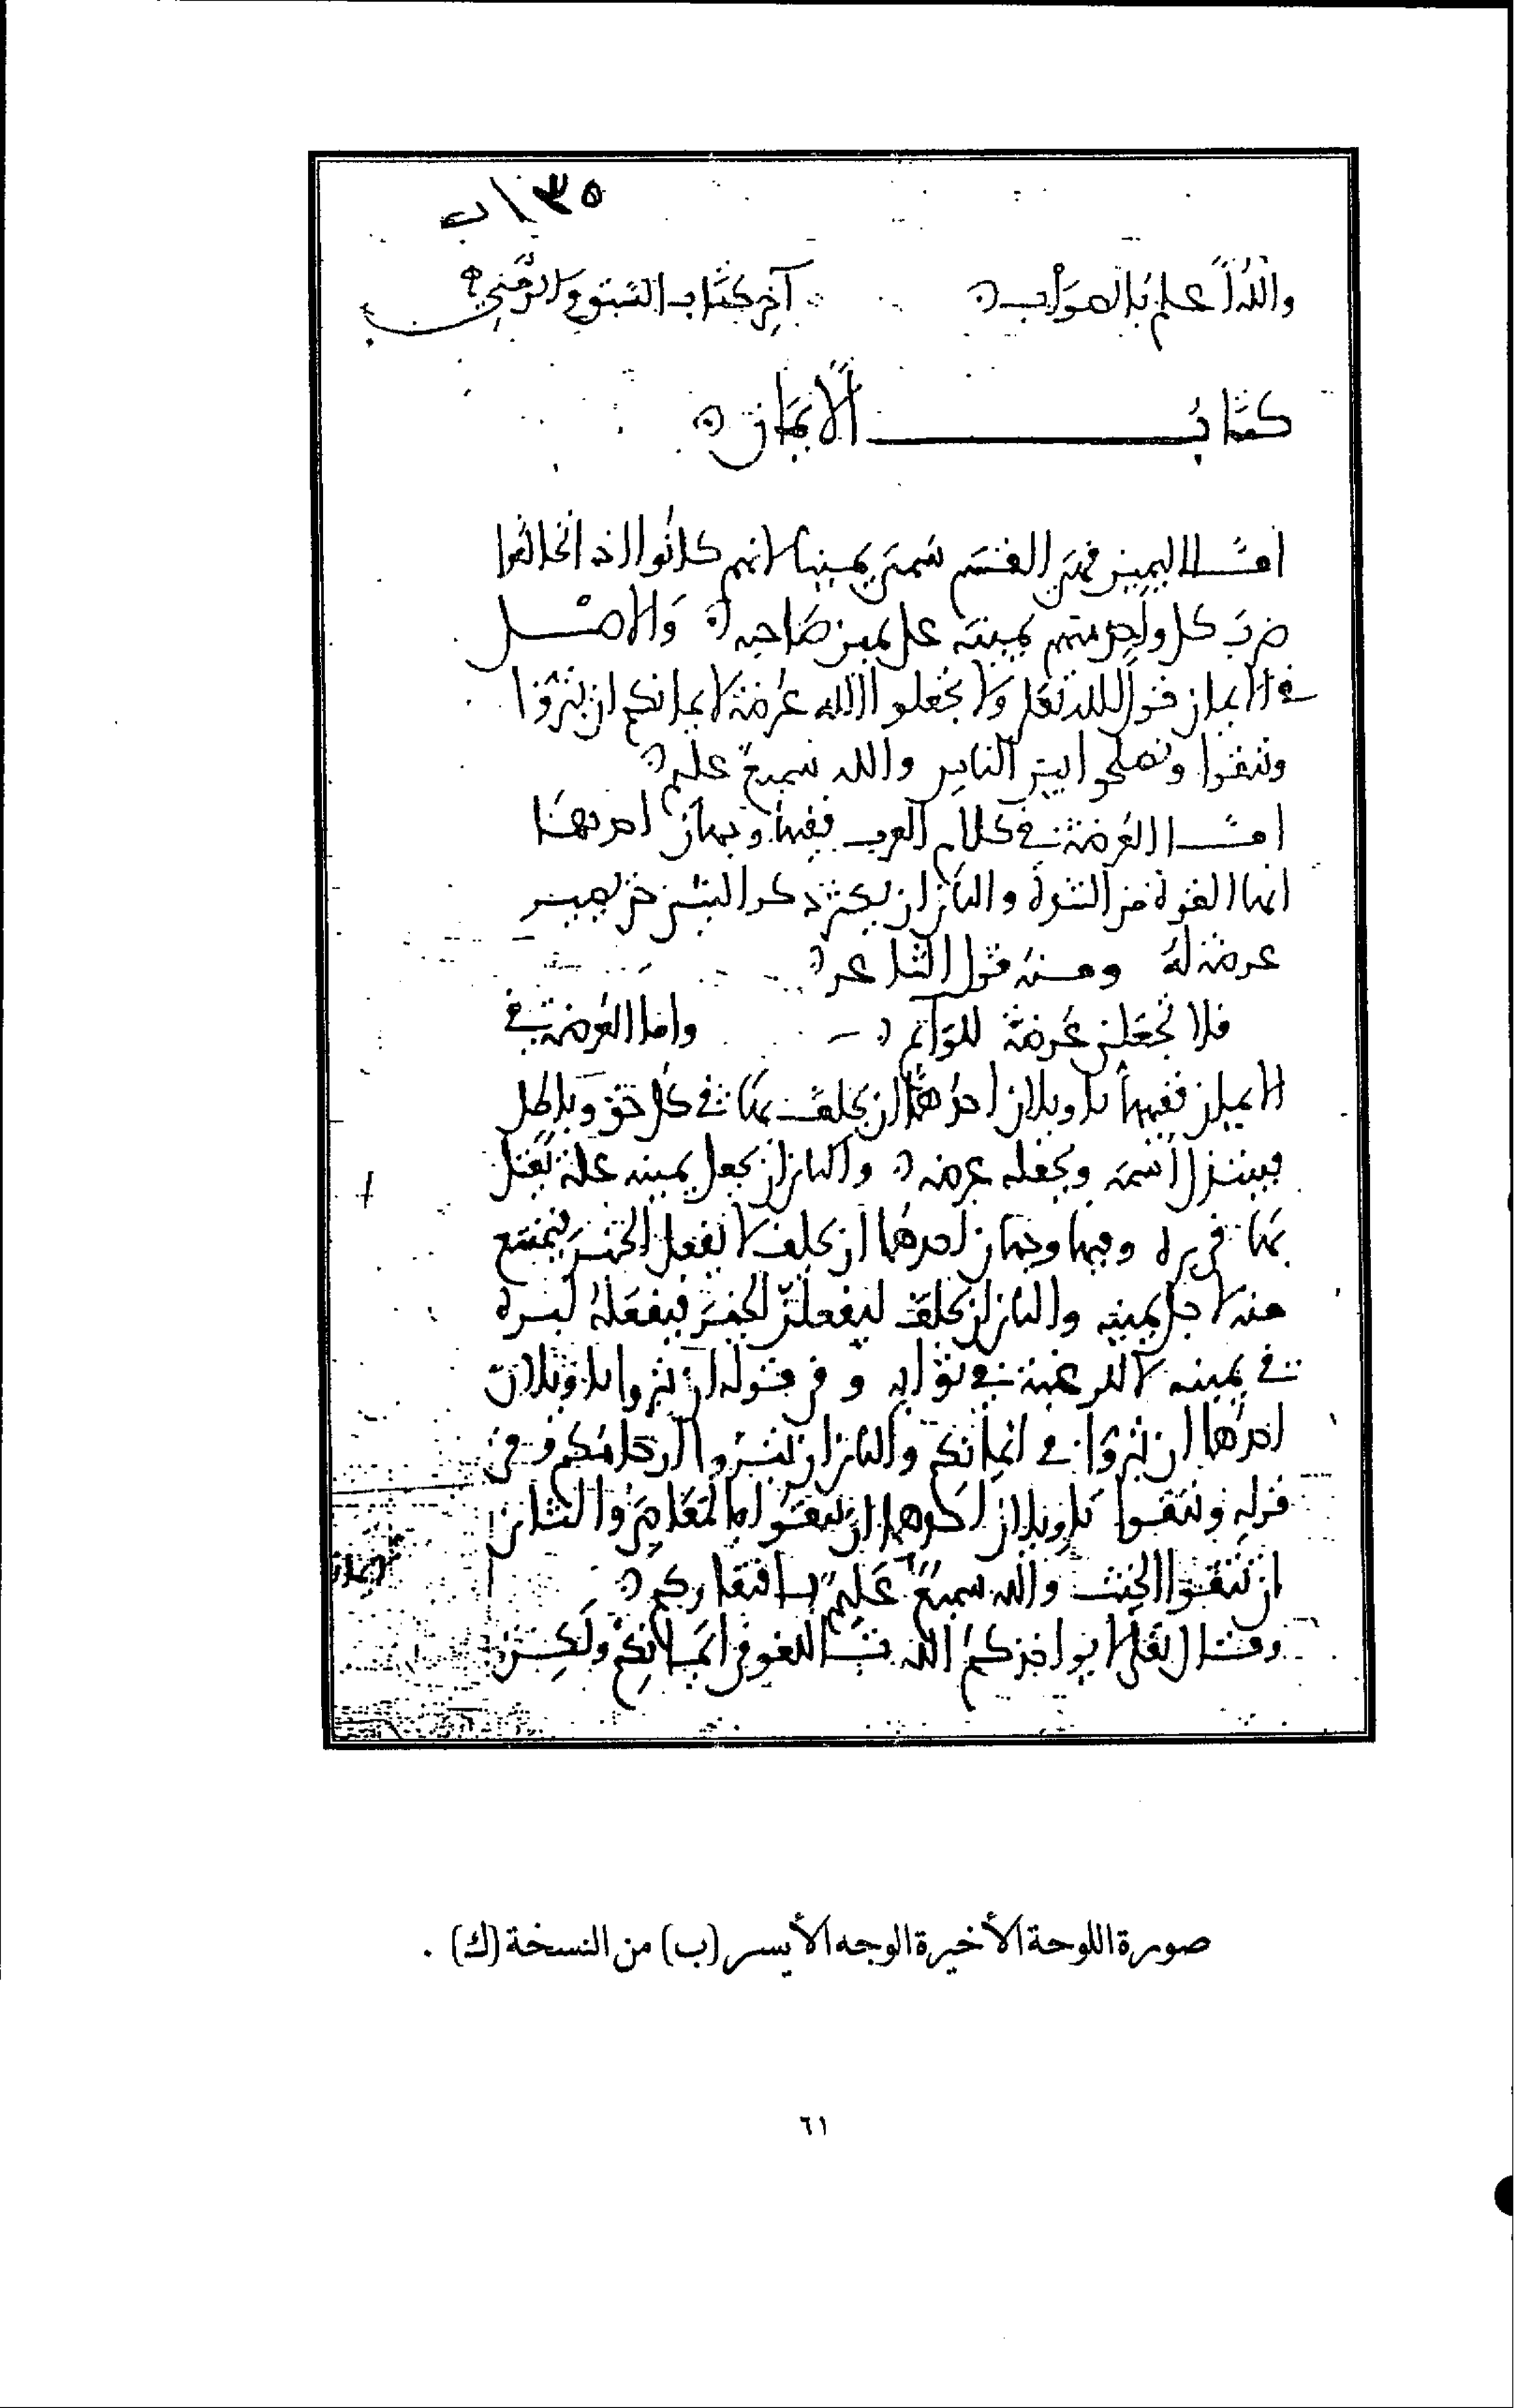 ٣٥\ب
والله أعلم بالصواب آخر كتاب السبق والرمي
كتاب الأيمان
أما اليمين فهي القسم سمي يمينا لأنهم كانوا إذا تحالفوا
ضرب كل واحد منهم بيمينه على يمين صاحبه والأصل
في الأيمان قول الله تعالى ولا تجعلوا الله عرضة لأيمانكم أن تبروا
وتتقوا وتصلحوا بين الناس والله سميع عليم
أما العرضة في كلام العرب ففيها وجهان أحدهما
أنها القوة من الشدة والثاني أن يكثر ذكر الشيء حتى يصير
عرضة له ومنه قول الشاعر
فلا تجعلني عرضة للوائم وأما العرضة في
الأيمان ففيها تأويلان أحدهما أن يحلف بها في كل حق وباطل
فيبتذل اسمه ويجعله عرضة والثاني أن يجعل يمينه علة يعتل
بها في بره وفيها وجهان أحدهما أن يحلف لا يفعل الخير فيمتنع
منه لأجل يمينه والثاني أن يحلف ليفعلن الخير فيفعله لبره
في يمينه لا للرغبة في ثوابه وفي قوله أن تبروا تأويلان
أحدهما أن تبروا في أيمانكم والثاني أن تبروا أرحامكم وفي
قوله وتتقوا تأويلان أحدهما أن تتقوا المعاصي والثاني
أن تتقوا الحنث والله سميع عليم
وقال تعالى لا يؤاخذكم الله باللغو في أيمانكم ولكن
صورة اللوحة الأخيرة الوجه الأيسر (ب) من النسخة (ك) .
٦١